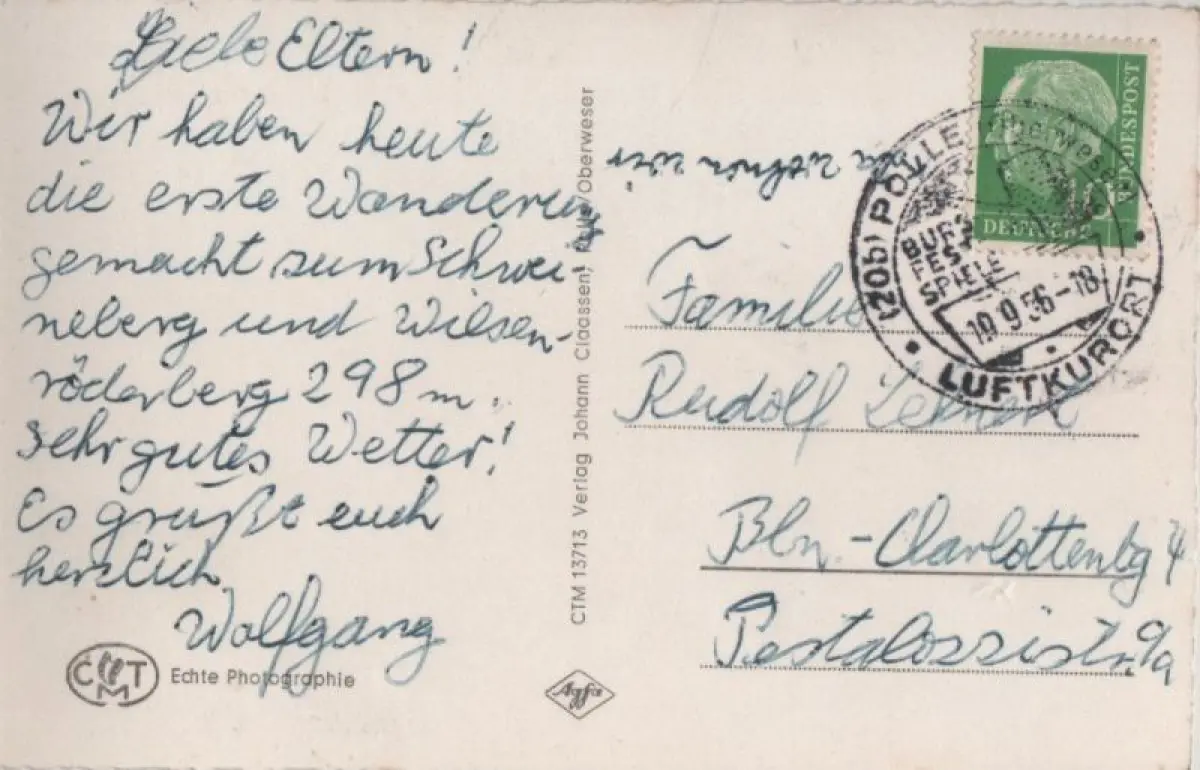 Liebe Eltern!
Wir haben heute
die erste Wanderung
gemacht zum Schwei-
neberg und Wilsen-
röderberg 298 m.
Sehr gutes Wetter!
Es grüßt euch
herzlich
Wolfgang
CMT
Echte Photographie
CTM 13713 Verlag Johann Claassen, Oberweser
Agfa
wohnen wir
DEUTSCHE BUNDESPOST
(20b) POLLE
BURG
FEST
SPIELE
19.9.56-18
LUFTKURORT
Familie
Rudolf
Bln.-Charlottenbg 4
Pestalozzistr. 9a